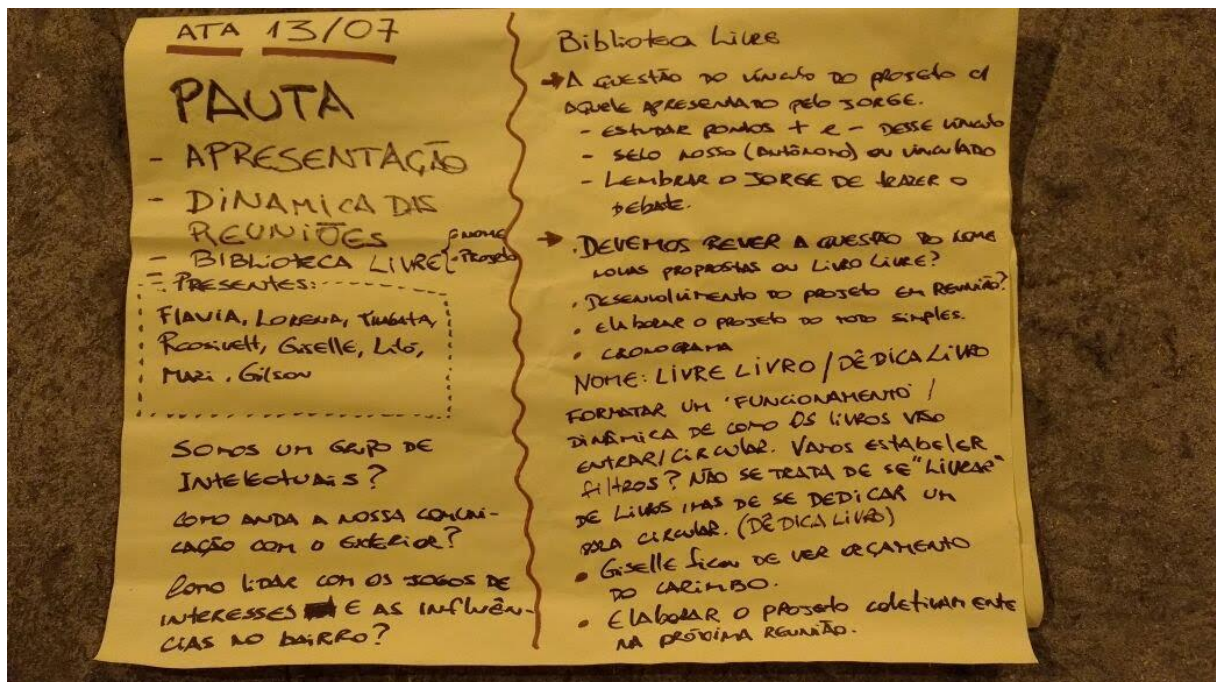 ATA 13/07
PAUTA
- APRESENTAÇÃO
- DINAMICA DAS
REUNIÕES
- BIBLIOTECA LIVRE { - NOME
- PROJETO
- PRESENTES:
FLAVIA, LORENA, THAGATA,
ROOSIVELT, GISELLE, LILÓ,
MARI, GILSON
SOMOS UM GRUPO DE
INTELECTUAIS?
COMO ANDA A NOSSA COMUNI-
CAÇÃO COM O EXTERIOR?
COMO LIDAR COM OS JOGOS DE
INTERESSES E AS INFLUÊN-
CIAS NO BAIRRO?
Biblioteca Livre
→ A QUESTÃO DO VÍNCULO DO PROJETO C/
AQUELE APRESENTADO PELO JORGE.
- ESTUDAR PONTOS + E - DESSE VINCULO
- SELO NOSSO (AUTÔNOMO) OU VINCULADO
- LEMBRAR O JORGE DE TRAZER O
DEBATE.
→ . DEVEMOS REVER A QUESTÃO DO NOME
NOVAS PROPROSTAS OU LIVRO LIVRE?
. DESENVOLVIMENTO DO PROJETO EM REUNIÃO?
• ELABORAR O PROJETO DO TODO SIMPLES.
• CRONOGRAMA
NOME: LIVRE LIVRO / DÊDICA LIVRO
FORMATAR UM 'FUNCIONAMENTO' /
DINÂMICA DE COMO OS LIVROS VÃO
ENTRAR/CIRCULAR. VAMOS ESTABELER
FILTROS? NÃO SE TRATA DE SE "LIVRAR"
DE LIVROS MAS DE SE DEDICAR UM
PARA CIRCULAR. (DÊDICA LIVRO)
• GISELLE FICOU DE VER ORÇAMENTO
DO CARIMBO.
• ELABORAR O PROJETO COLETIVAMENTE
NA PRÓXIMA REUNIÃO.